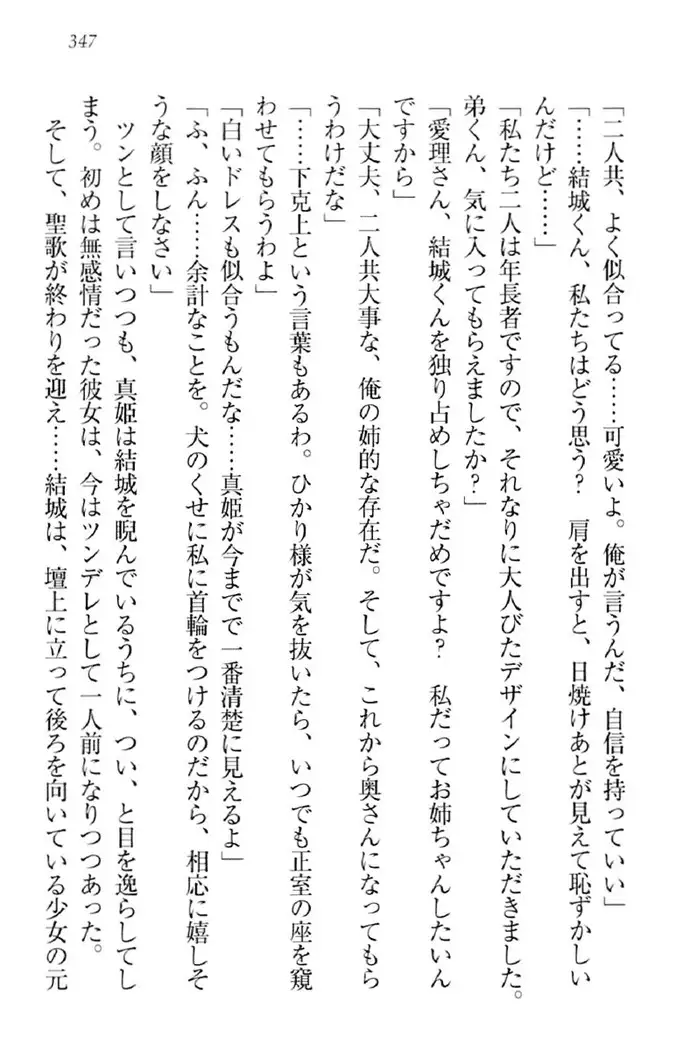 347
「二人共、よく似合ってる……可愛いよ。俺が言うんだ、自信を持っていい」
「……結城くん、私たちはどう思う？　肩を出すと、日焼けあとが見えて恥ずかしい
んだけど……」
「私たち二人は年長者ですので、それなりに大人びたデザインにしていただきました。
弟くん、気に入ってもらえましたか？」
「愛理さん、結城くんを独り占めしちゃだめですよ？　私だってお姉ちゃんしたいん
ですから」
「大丈夫、二人共大事な、俺の姉的な存在だ。そして、これから奥さんになってもら
うわけだな」
「……下克上という言葉もあるわ。ひかり様が気を抜いたら、いつでも正室の座を窺
わせてもらうわよ」
「白いドレスも似合うもんだな……真姫が今までで一番清楚に見えるよ」
「ふ、ふん……余計なことを。犬のくせに私に首輪をつけるのだから、相応に嬉しそ
うな顔をしなさい」
ツンとして言いつつも、真姫は結城を睨んでいるうちに、つい、と目を逸らしてし
まう。初めは無感情だった彼女は、今はツンデレとして一人前になりつつあった。
そして、聖歌が終わりを迎え……結城は、壇上に立って後ろを向いている少女の元